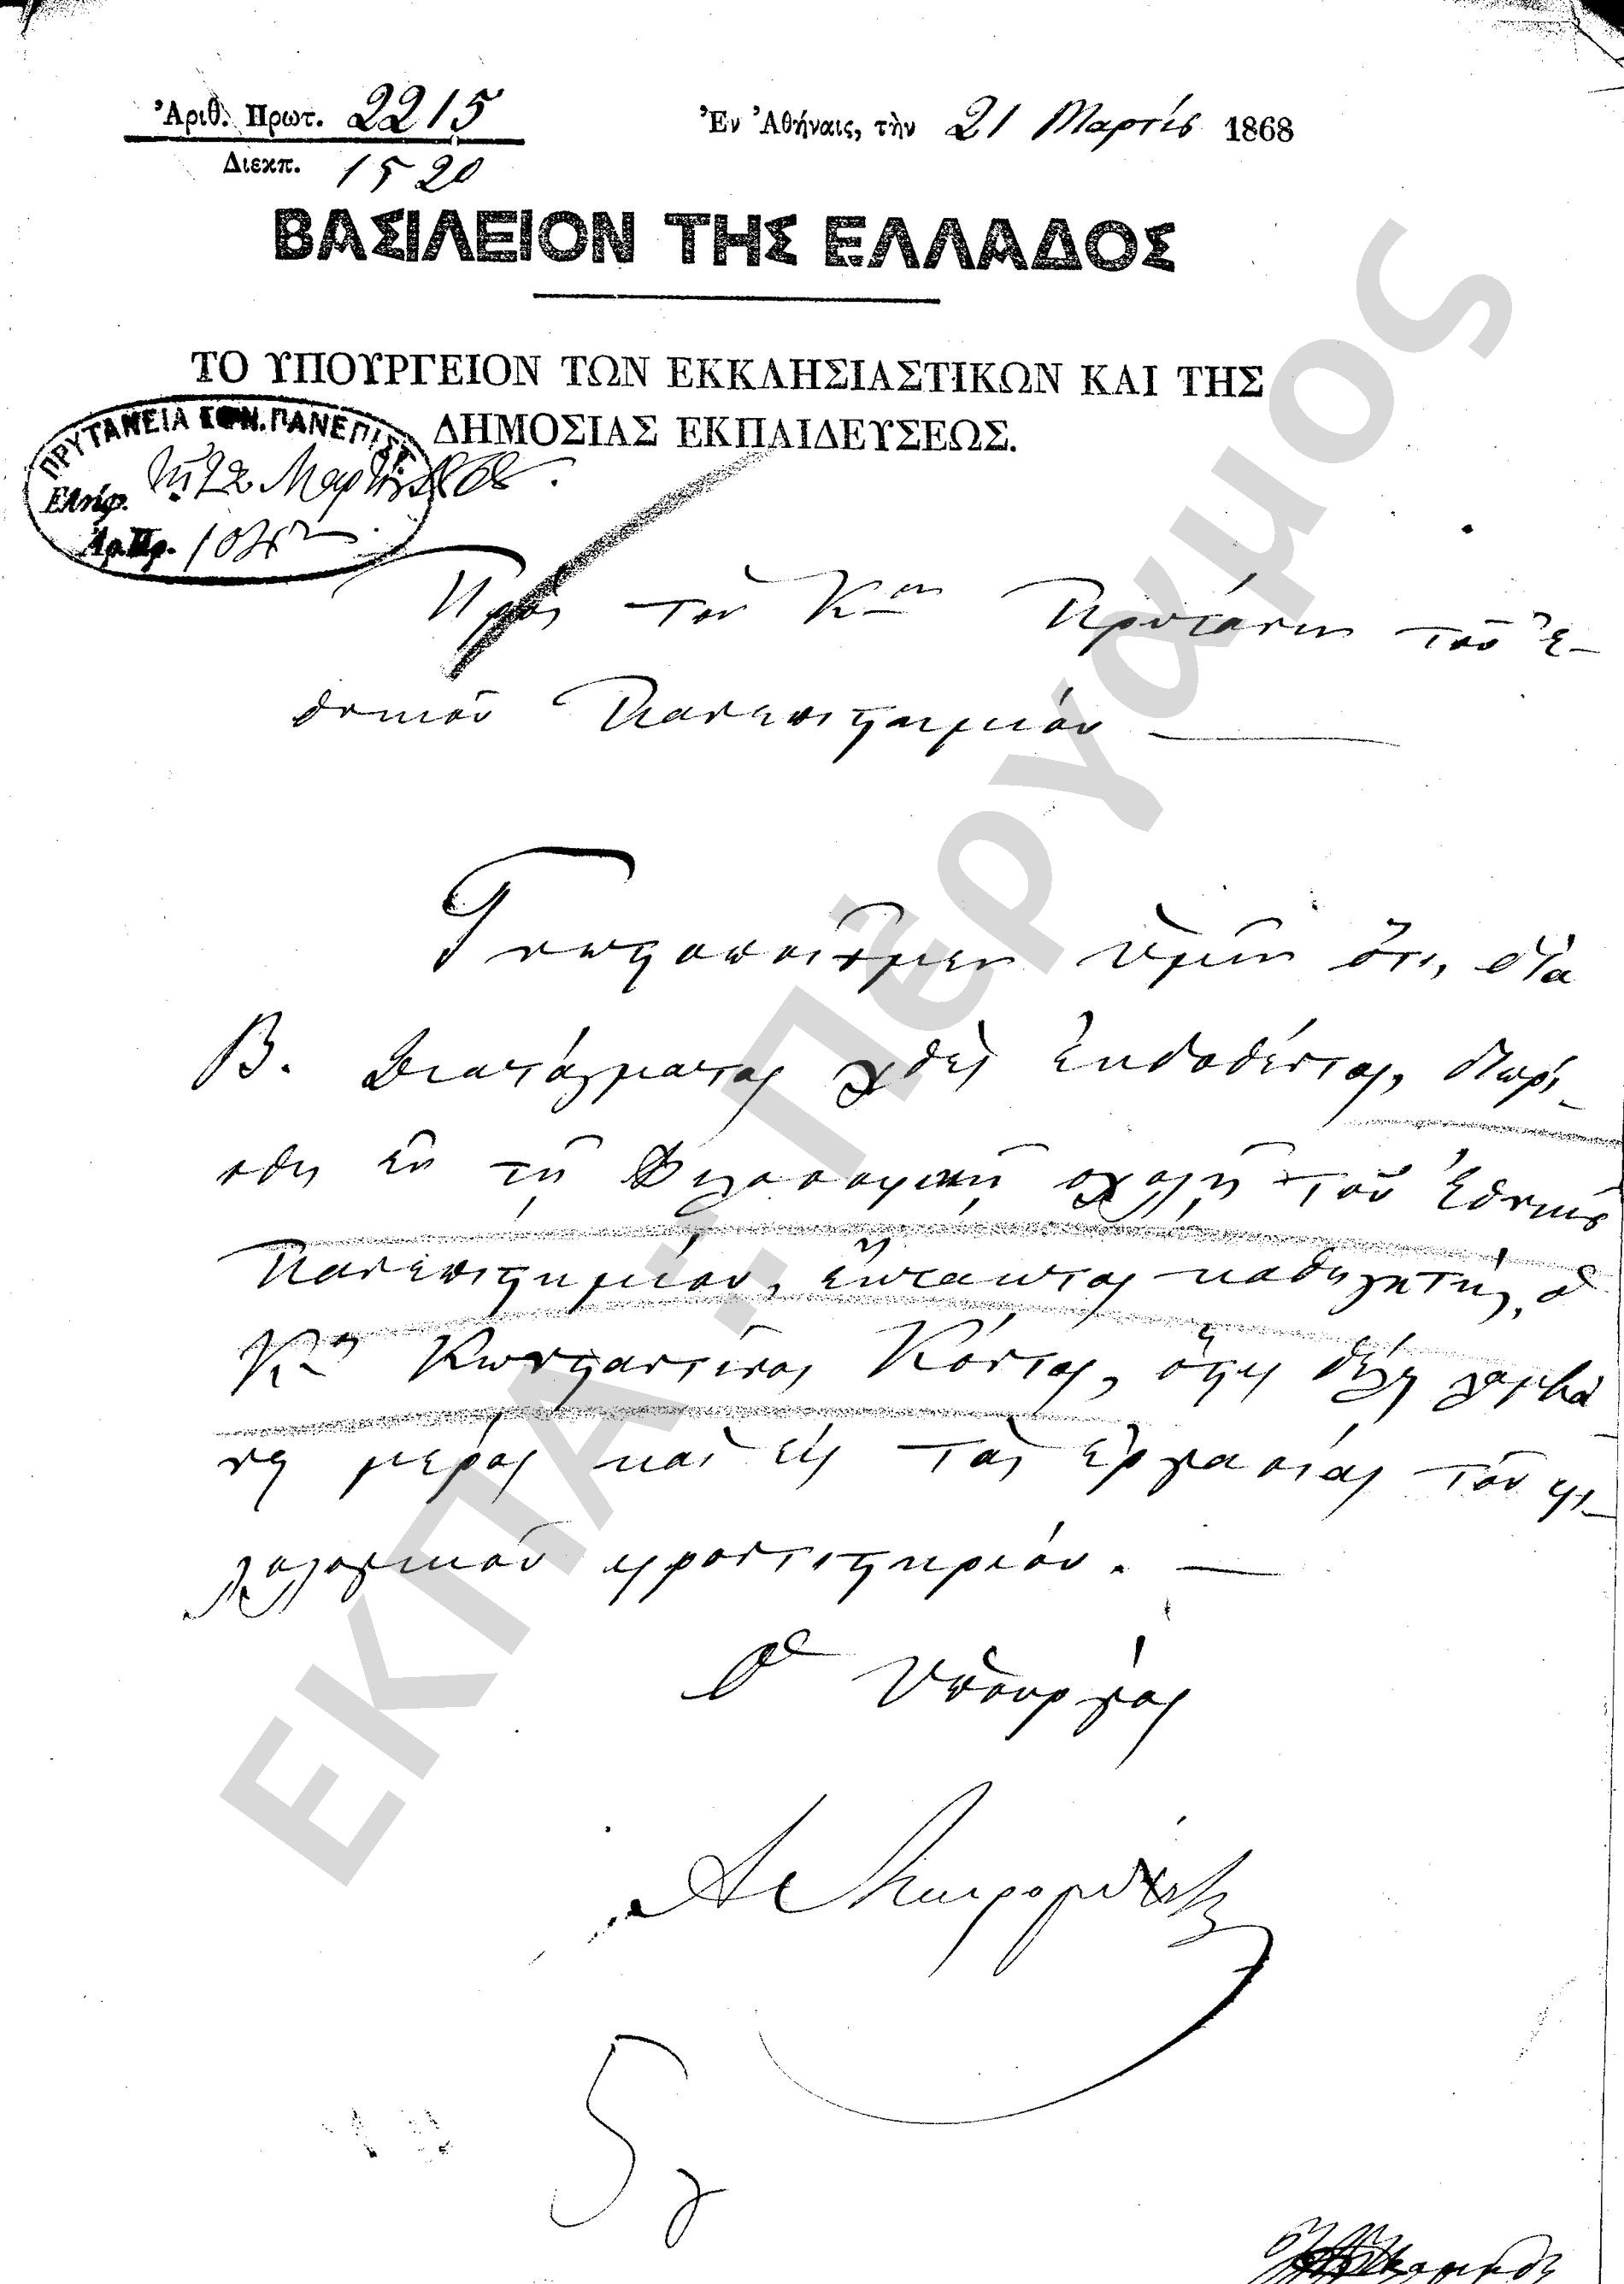 Ἀριθ. Πρωτ. 2215
Διεκπ. 1520
Ἐν Ἀθήναις, τὴν 21 Μαρτίου 1868
ΒΑΣΙΛΕΙΟΝ ΤΗΣ ΕΛΛΑΔΟΣ
ΤΟ ΥΠΟΥΡΓΕΙΟΝ ΤΩΝ ΕΚΚΛΗΣΙΑΣΤΙΚΩΝ ΚΑΙ ΤΗΣ
ΔΗΜΟΣΙΑΣ ΕΚΠΑΙΔΕΥΣΕΩΣ.
ΠΡΥΤΑΝΕΙΑ ΕΘΝ. ΠΑΝΕΠΙΣΤ.
Ἐλήφ. τῇ 22 Μαρτίου 1868.
Ἀρ. Πρ.
Πρὸς τὸν Κον Πρύτανιν τοῦ Ἐ-
θνικοῦ Πανεπιστημίου
Γνωστοποιοῦμεν ὑμῖν ὅτι, διὰ
Β. Διατάγματος χθὲς ἐκδοθέντος, διωρί-
σθη ἐν τῇ Φιλοσοφικῇ σχολῇ τοῦ Ἐθνικοῦ
Πανεπιστημίου, ἔκτακτος καθηγητής, ὁ
Κος Κωνσταντῖνος Κόντος, ὅστις θέλει λαμβά
νει μέρος καὶ εἰς τὰς ἐργασίας τοῦ φι-
λολογικοῦ φροντιστηρίου.
Ὁ Ὑπουργὸς
Α Μαυρομιχάλης
ΕΚΠΑ :: Πέργαμος